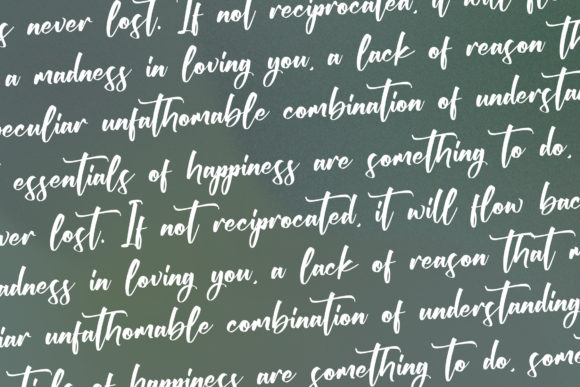 s never lost. If not reciprocated, it will flow
a madness in loving you, a lack of reason th
peculiar unfathomable combination of understan
essentials of happiness are something to do,
ver lost. If not reciprocated, it will flow bac
adness in loving you, a lack of reason that m
iar unfathomable combination of understanding
tials of happiness are something to do, some